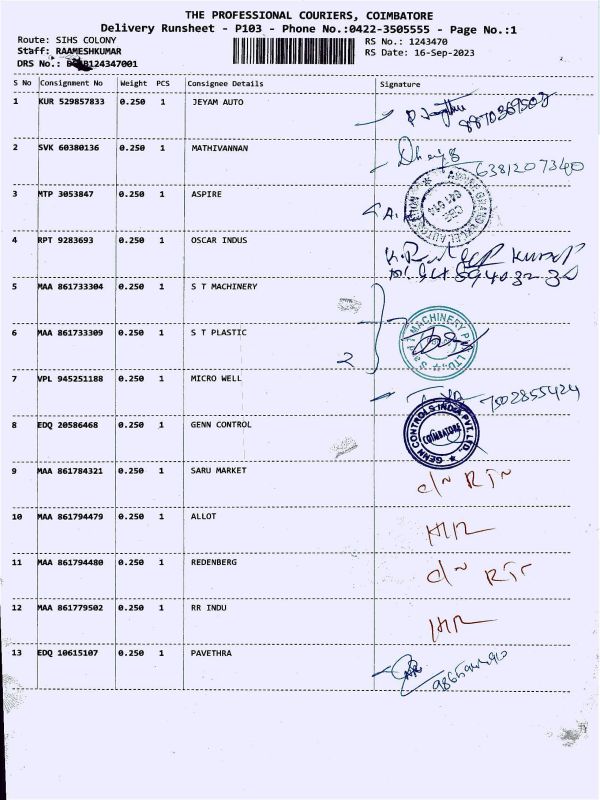 THE PROFESSIONAL COURIERS, COIMBATORE
Delivery Runsheet - P103 - Phone No.:0422-3505555 - Page No.:1
Route: SIHS COLONY
RS No.: 1243470
Staff: RAAMESHKUMAR
RS Date: 16-Sep-2023
DRS No.: B124347001
S No Consignment No Weight PCS Consignee Details Signature
1 KUR 529857833 0.250 1 JEYAM AUTO
2 SVK 60380136 0.250 1 MATHIVANNAN
6381207340
3 MTP 3053847 0.250 1 ASPIRE
4 RPT 9283693 0.250 1 OSCAR INDUS
5 MAA 861733304 0.250 1 S T MACHINERY
6 MAA 861733309 0.250 1 S T PLASTIC
2
MACHINERY
7 VPL 945251188 0.250 1 MICRO WELL
7502855424
8 EDQ 20586468 0.250 1 GENN CONTROL
GENN CONTROLS INDIA PVT. LTD.
COIMBATORE
9 MAA 861784321 0.250 1 SARU MARKET
10 MAA 861794479 0.250 1 ALLOT
11 MAA 861794480 0.250 1 REDENBERG
12 MAA 861779502 0.250 1 RR INDU
13 EDQ 10615107 0.250 1 PAVETHRA